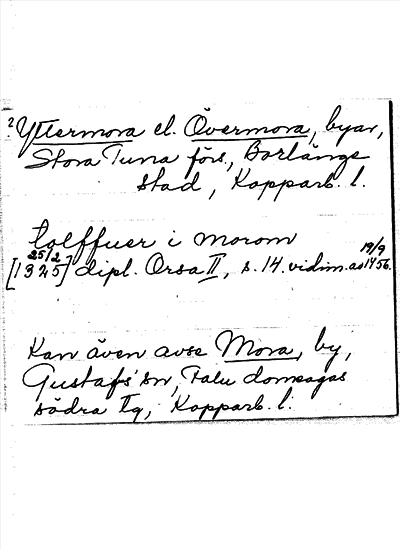 2 Yttermora el. Övermora, byar,
Stora Tuna förs., Borlänge
stad, Kopparb. l.
tolffuer i morom
25/2 19/9
[1325] dipl. Orsa II, s. 14. vidim. av 1456.
Kan även avse Mora, by,
Gustafs' sn, Falu domsagas
södra tg, Kopparb. l.